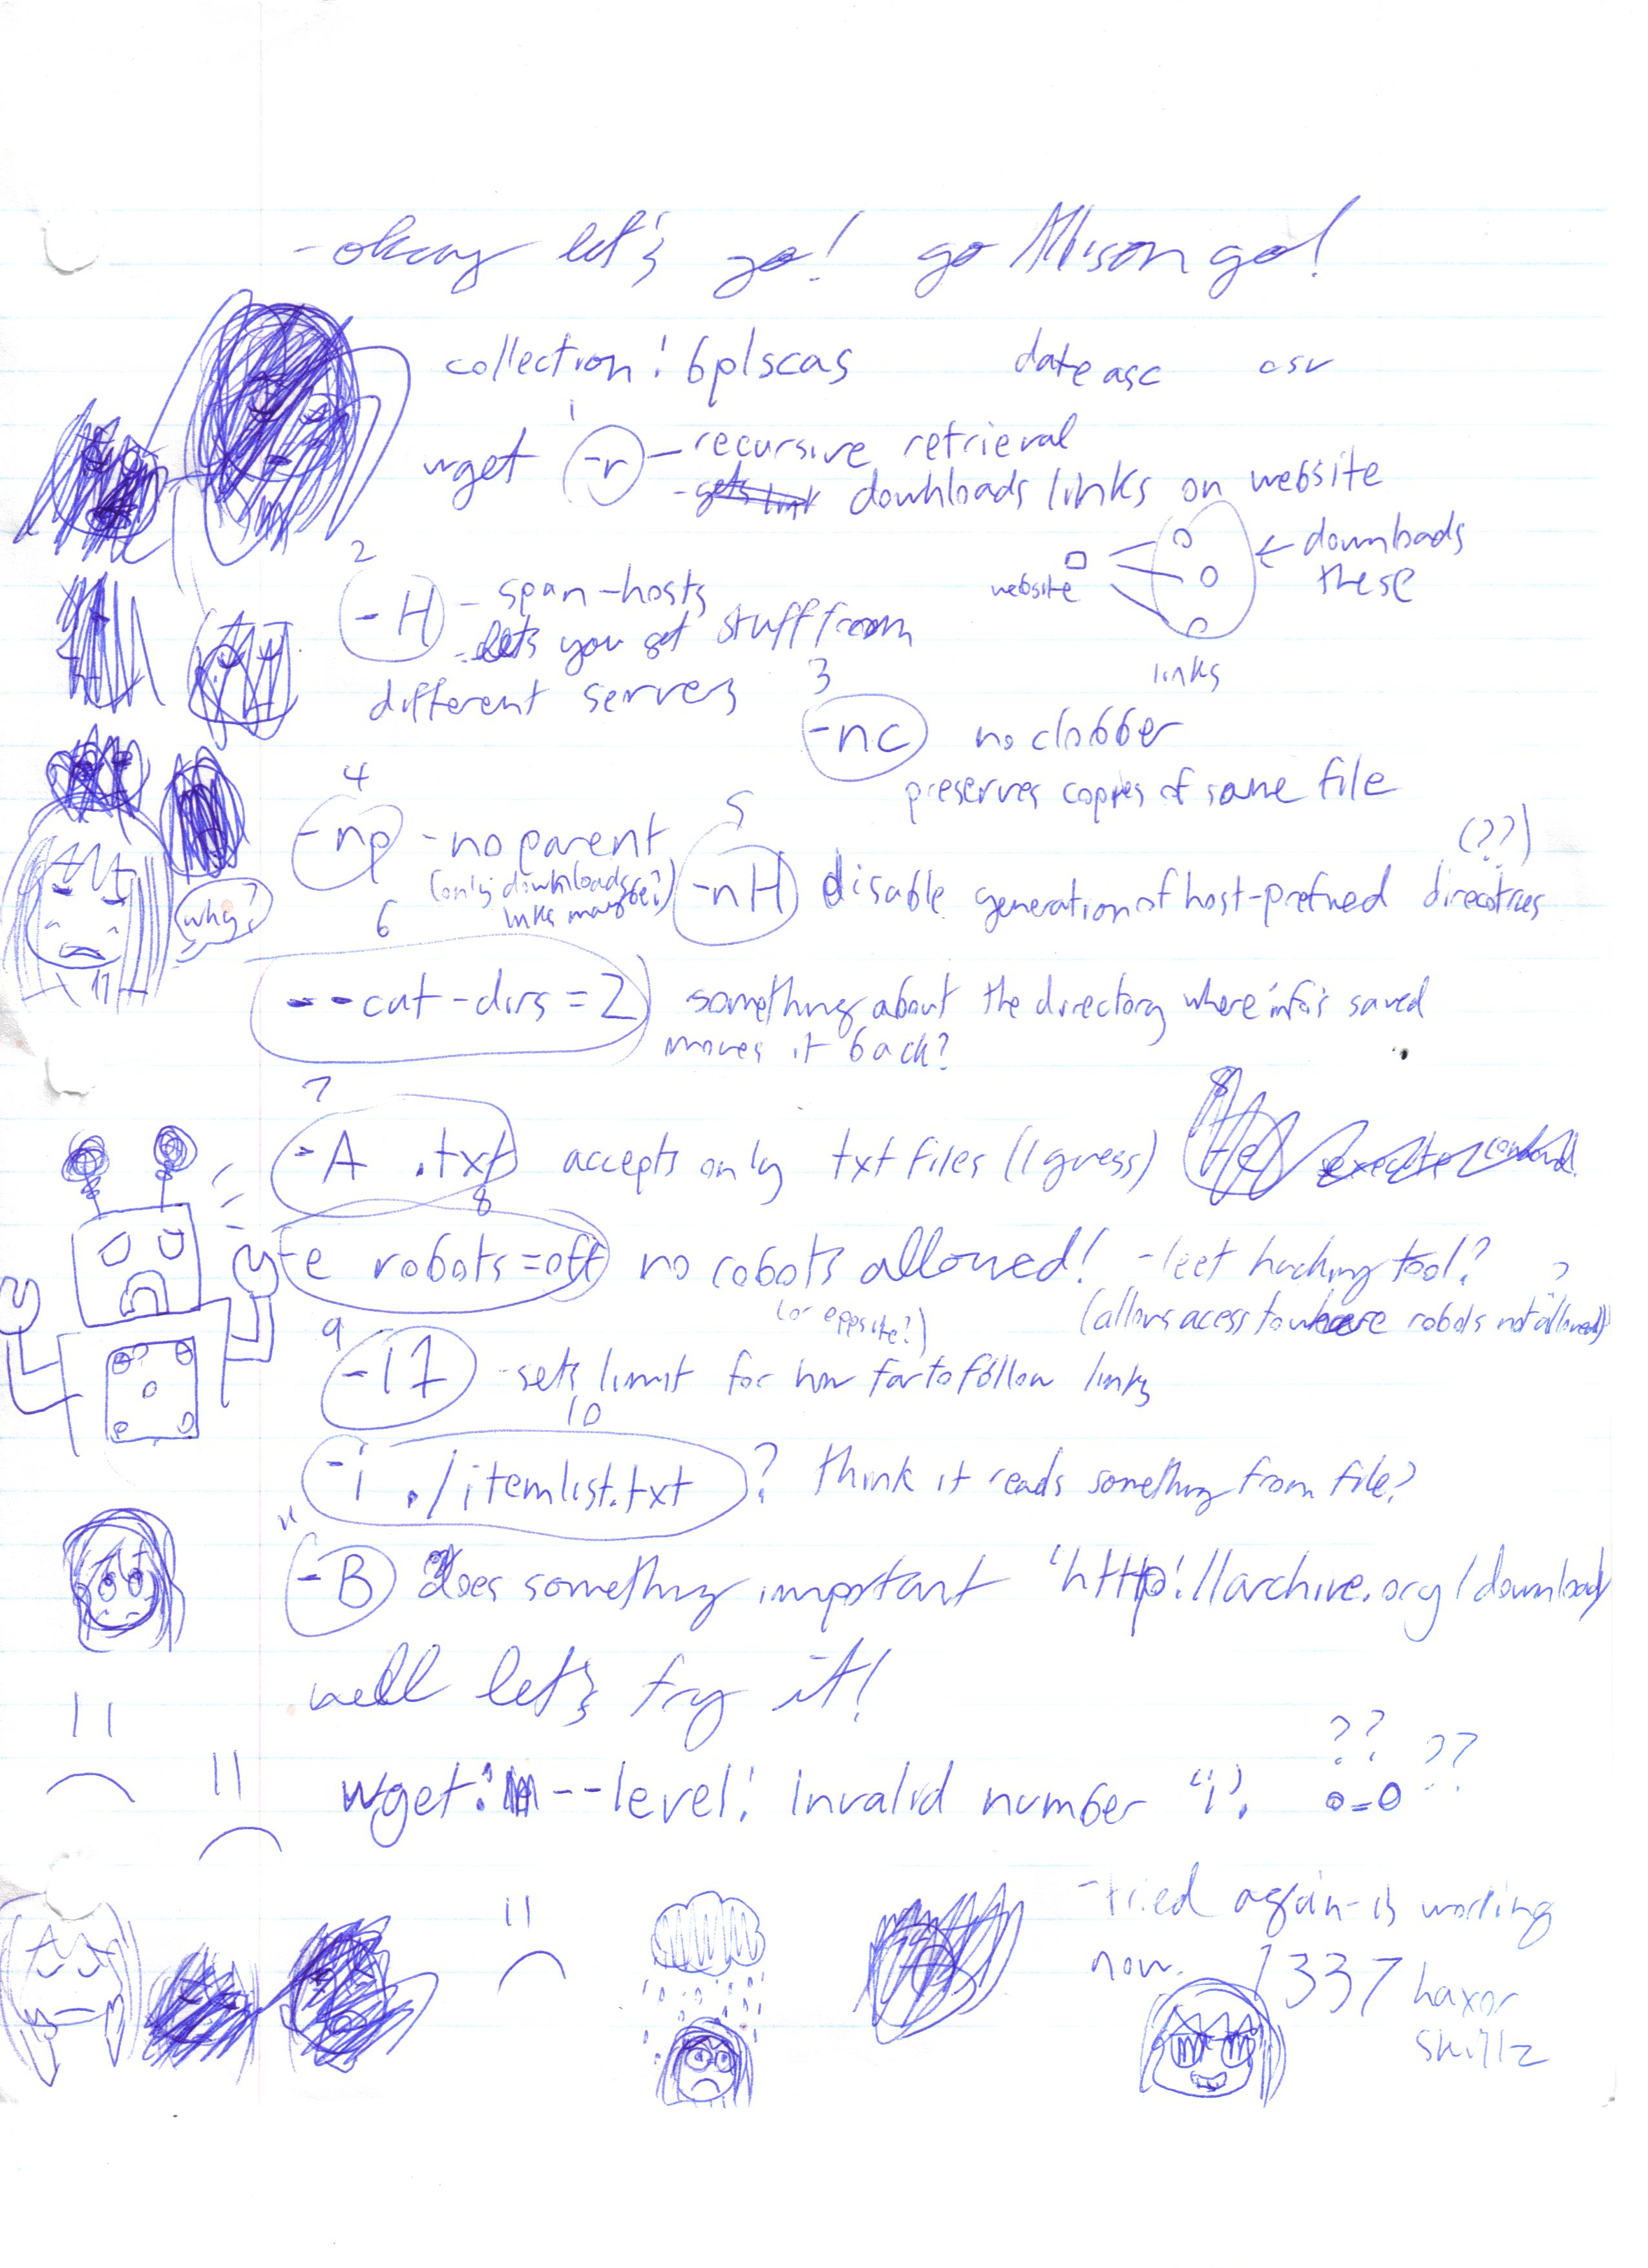 -okay let's go! go Allison go!
collection: bplscas date asc csv
1
wget -r - recursive retrieval
- gets link downloads links on website
← downloads these
website
links
2
-H - span-hosts
- lets you get stuff from
different servers
3
-nc no clobber
preserves copies of same file
4
-np - no parent
(only downloads links maybe?)
5
-nH disable generation of host-prefined direcotries
(??)
why?
6
--cut-dirs=2 something about the directory where info's saved
moves it back?
7
-A .txt accepts only txt files (I guess)
8
-e execute command
8
-e robots=off no robots allowed! -leet hacking tool?
(or oppsite?) (allows acess to where robots not allowed?)
9
-l1 -sets limit for how far to follow links
10
-i ./itemlist.txt ? think it reads something from file?
11
-B does something important 'http://archive.org/download/
well let's try it!
wget: --level: invalid number 'i'. ?? ??
o=o
-tried again-is working
now. 1337 haxor
skillz